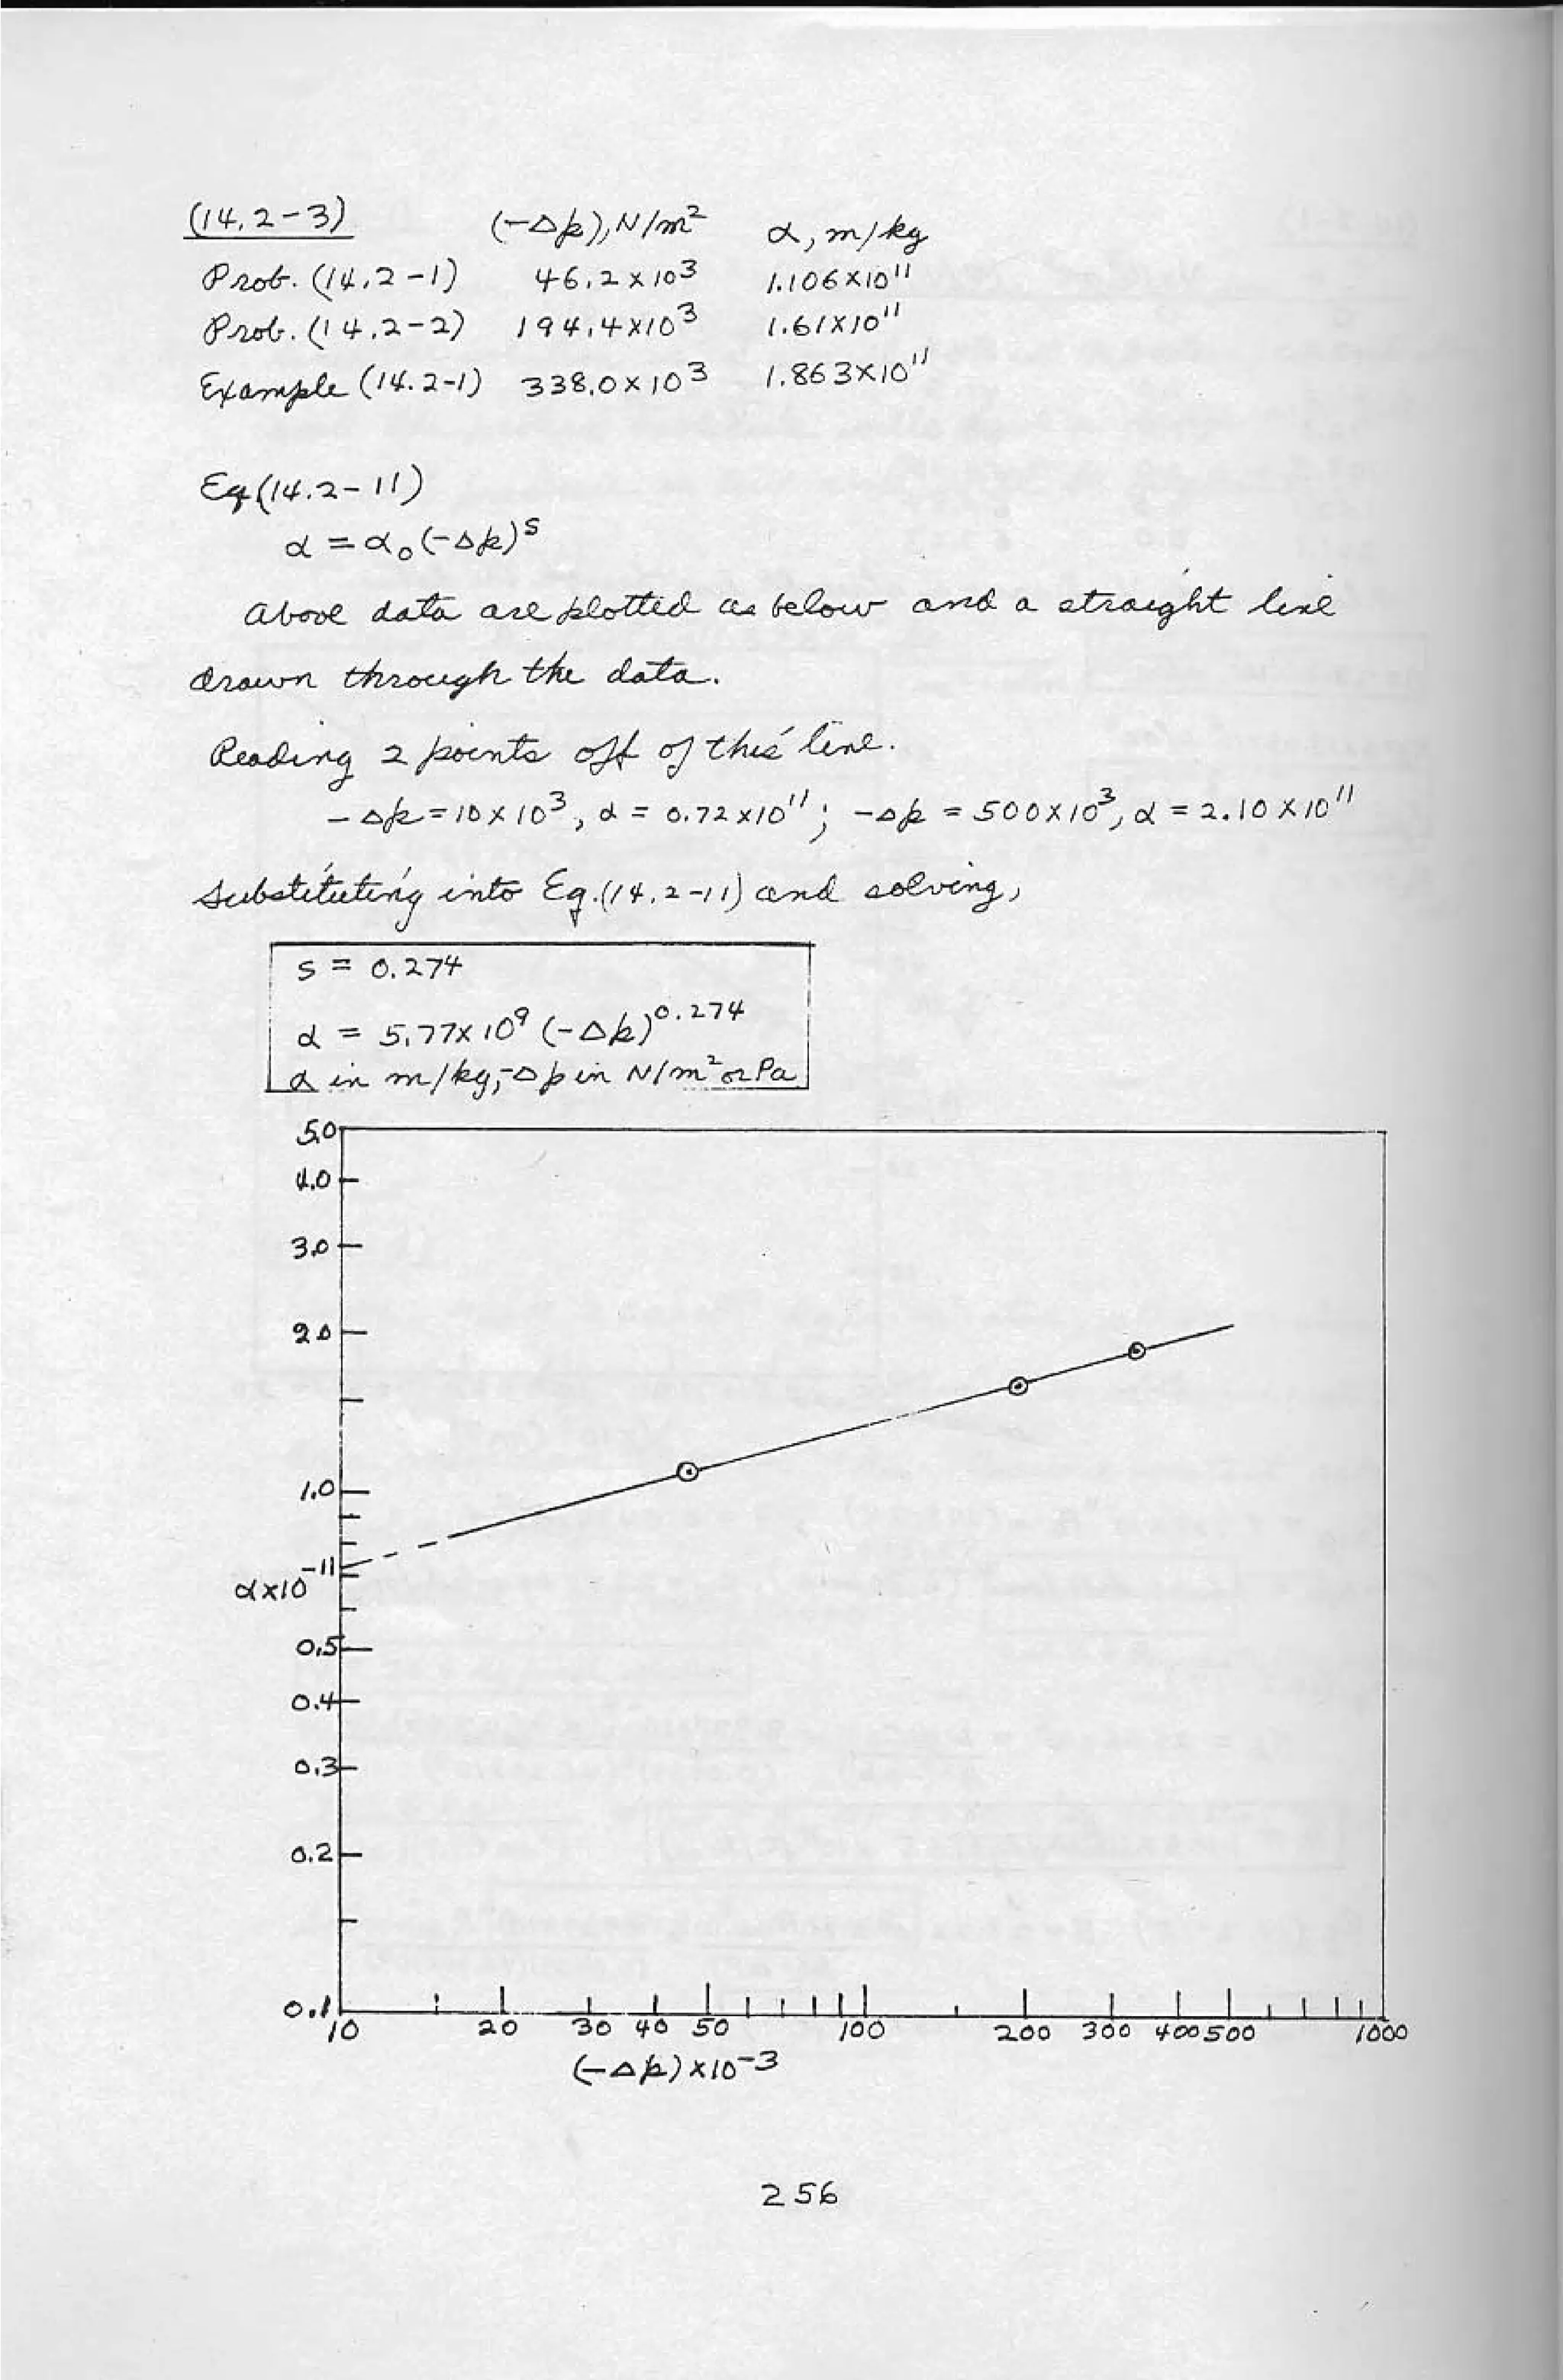 (14.2-3) (-Δp), N/m² α, m/kg
Prob. (14.2-1) 46.2×10³ 1.106×10¹¹
Prob. (14.2-2) 194.4×10³ 1.61×10¹¹
Example (14.2-1) 338.0×10³ 1.863×10¹¹
Eq (14.2-11)
α = α₀(-Δp)ˢ
Above data are plotted as below and a straight line
drawn through the data.
Reading 2 points off of this line.
-Δp = 10×10³, α = 0.72×10¹¹; -Δp = 500×10³, α = 2.10×10¹¹
Substituting into Eq. (14.2-11) and solving,
s = 0.274
α = 5.77×10⁹ (-Δp)⁰·²⁷⁴
α in m/kg, -Δp in N/m² or Pa
5.0
4.0
3.0
2.0
1.0
α×10⁻¹¹
0.5
0.4
0.3
0.2
0.1
10 20 30 40 50 100 200 300 400 500 1000
(-Δp)×10⁻³
256